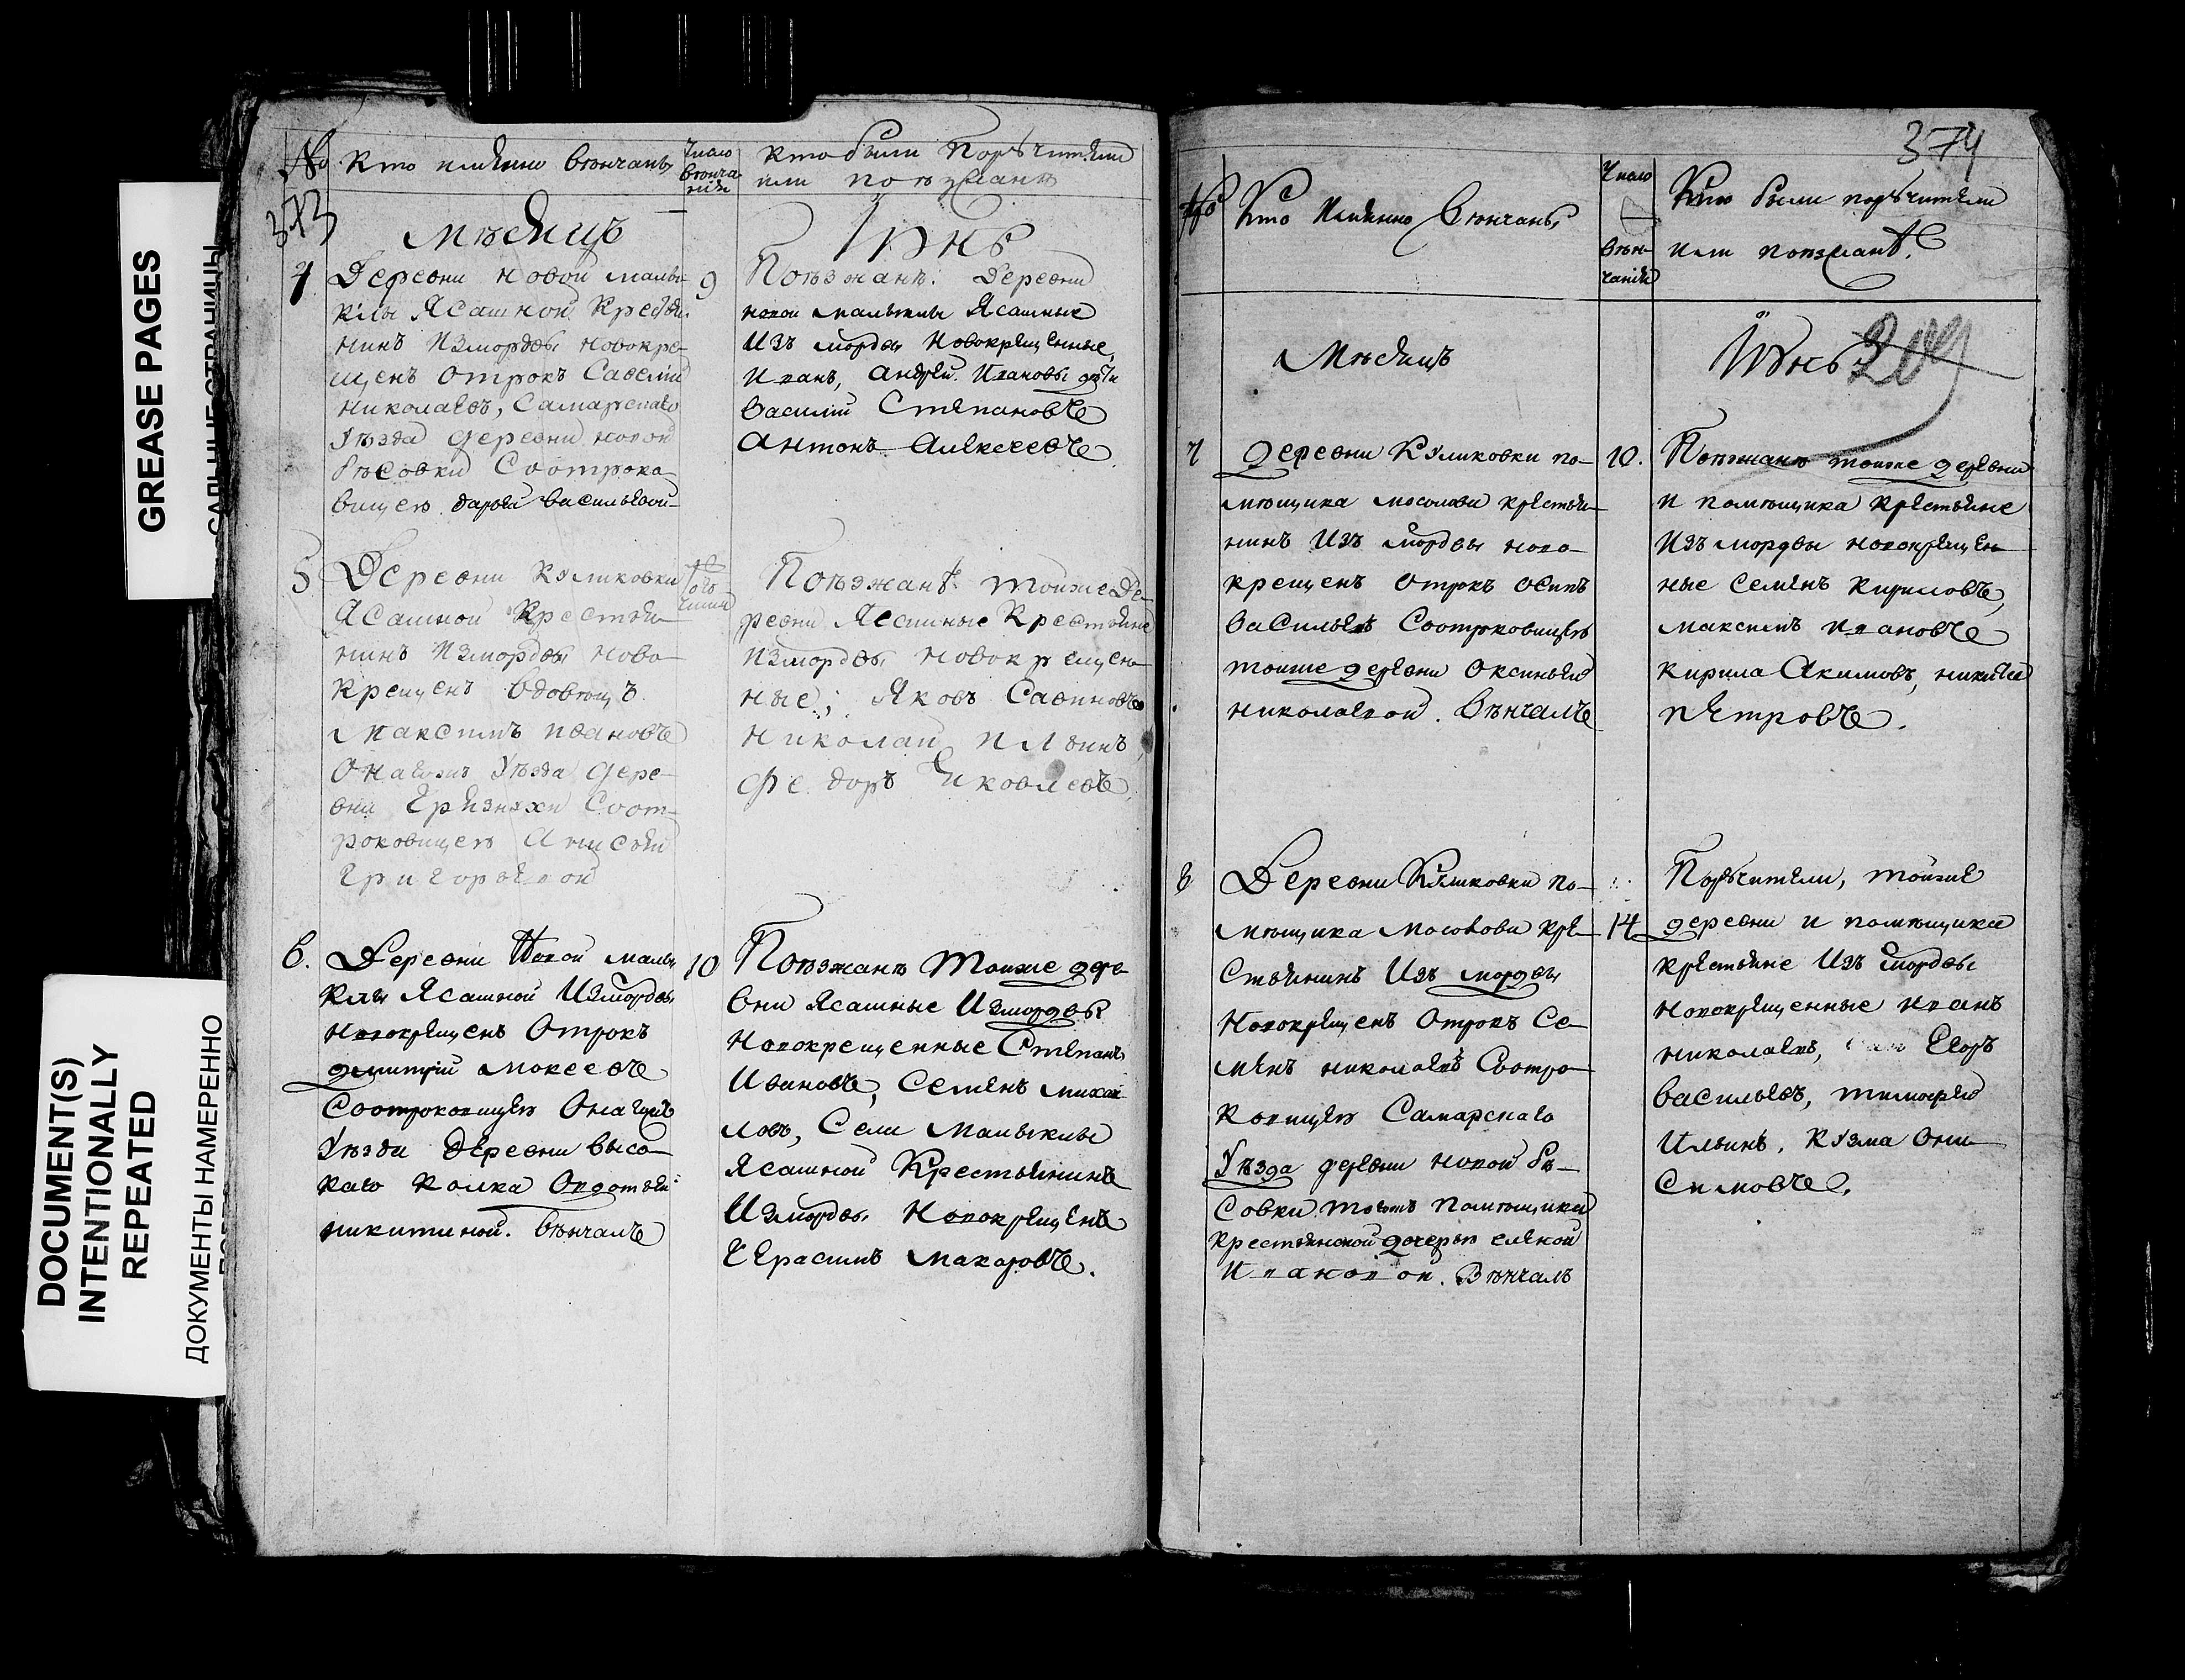 GREASE PAGES
САЛЬНЫЕ СТРАНИЦЫ
DOCUMENT(S)
INTENTIONALLY
REPEATED
ДОКУМЕНТЫ НАМЕРЕННО
№ Кто имянно венчаны
Число венчания
Кто были поручители
или поезжанѣ
373
Мѣсяцъ
Iюнь
4
Деревни новой малы-
клы Ясашной Крестья-
нинъ измордвы новокре-
щенъ отрокъ Савелии
николаевъ, Самарскаго
уѣзда деревни новой
бесовки Соотроко-
вицею дарьей васильевой
9
Поѣзжанѣ: Деревни
новой малыклы Ясашные
Изъ мордвы новокрещенные,
Иванъ, андрей Ивановы дѣти
василий Степановъ
антонъ Алексеевъ
5
Деревни куликовки
Ясашной Крестья-
нинъ измордвы ново-
крещенъ вдовецъ
Максимъ ивановъ
Онагожъ уѣзда дере-
вни Грязнухи Соот-
роковицею Анисьей
Григорьевой
того числа
Поѣзжанѣ тойже де-
ревни Ясашные Крестьяне
измордвы новокрещен-
ные; Яковъ Савиновъ
николай ильинъ,
федоръ Яковлевъ.
6.
Деревни Новой малы-
клы Ясашной Измордвы
новокрещенъ Отрокъ
дмитрий мокеевъ
Соотроковицею Онагожъ
уѣзда деревни высо-
каго колка Овдотьей
никитиной. Вѣнчалъ
10
Поѣзжанѣ тойже дере-
вни Ясашные Измордвы
новокрещенные Степанъ
Ивановъ, Семенъ михаи-
ловъ, Села Малыклы
Ясашной Крестьянинъ
Измордвы новокрещенъ
Герасимъ Макаровъ.
374
№ Кто имянно венчаны
Число
вѣн-
чания
Кто были поручители
или поезжанѣ.
Мѣсяцъ
Июнь
209
7
деревни Куликовки по-
мѣщика мосолова крестья-
нинъ Изъ мордвы ново-
крещенъ отрокъ осипъ
васильевъ Соотроковицею
тоиже деревни Оксиньей
николаевой. Вѣнчалъ
10.
Поезжанѣ тоиже деревни
и помѣщика крестьяне
Изъ мордвы новокрещен-
ные семенъ кириловъ,
максимъ ивановъ
кирила Акимовъ, никифоръ
петровъ.
8
Деревни Куликовки по-
мѣщика Мосолова кре-
стьянинъ Изъ мордвы
новокрещенъ Отрокъ Се-
менъ николаевъ Соотро-
ковицею Самарскаго
уѣзда деревни новой бе-
совки тогожъ помѣщика
крестьянской дочерью еленой
Ивановой. Вѣнчалъ
14
Поручители, тойже
деревни и помѣщика
крестьяне Изъ мордвы
новокрещенные иванъ
николаевъ, Егоръ
васильевъ, тимофей
Ильинъ, Кузма Они-
симовъ.